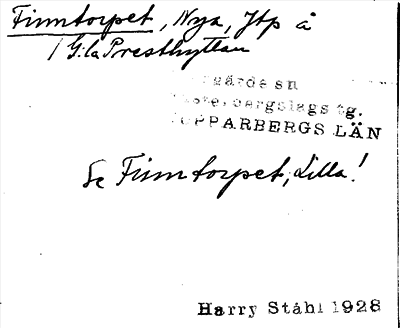 Finntorpet, Nya, Jtp å
/ G:la Presthyttan
gärde sn
bergslags tg.
KOPPARBERGS LÄN
Se Finntorpet, Lilla!
Harry Ståhl 1928